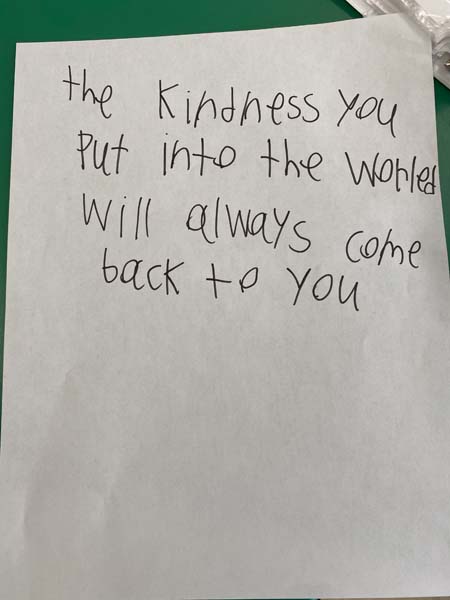 the Kindness you
Put into the Worled
Will always come
back to you